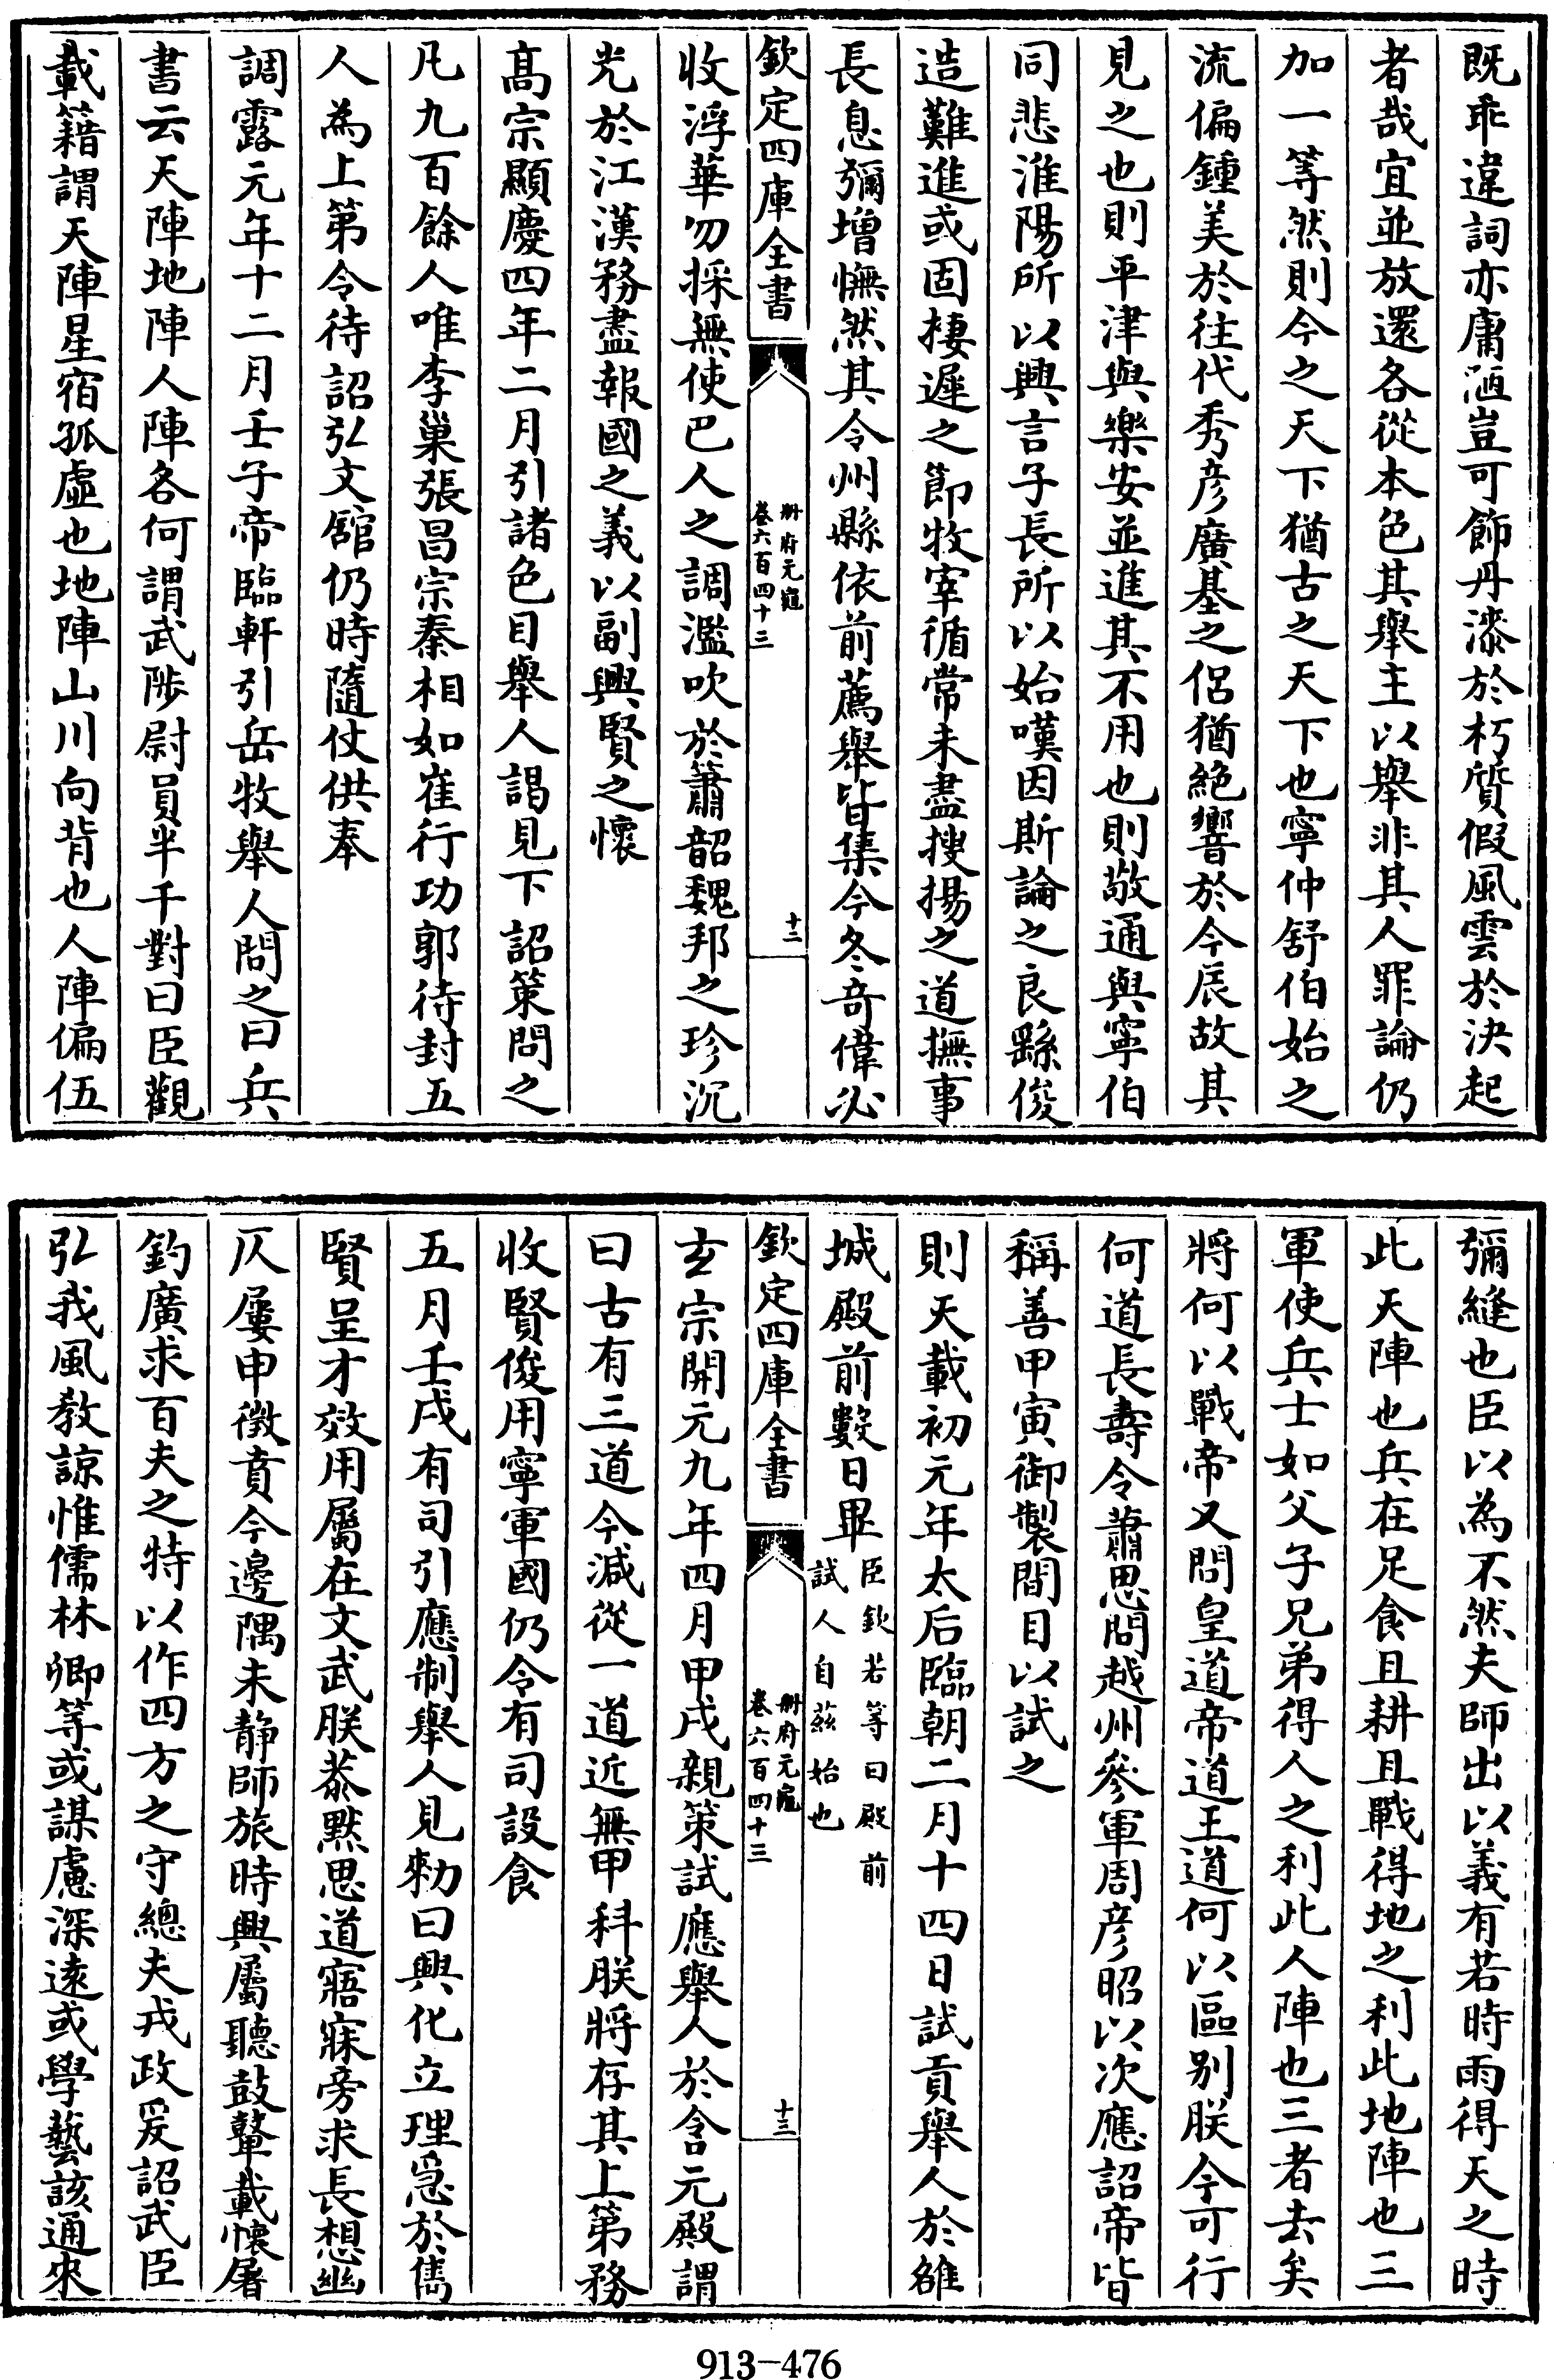 既乖違詞亦庸陋豈可飾丹漆於朽質假風雲於決起
者哉宜並放還各從本色其舉主以舉非其人罪論仍
加一等然則今之天下猶古之天下也寧仲舒伯始之
流偏鍾美於往代秀彦廣基之侣猶絶響於今辰故其
見之也則平津與樂安並進其不用也則敬通與寧伯
同悲淮陽所以興言子長所以始嘆因斯論之良繇俊
造難進或固棲遲之節牧宰循常未盡搜揚之道撫事
長息彌增憮然其令州縣依前薦舉皆集今冬奇偉必
欽定四庫全書
册府元龜
卷六百四十三
十二
收浮華勿採無使巴人之調濫吹於簫韶魏邦之珍沉
光於江漢務盡報國之義以副興賢之懷
髙宗顯慶四年二月引諸色目舉人謁見下詔策問之
凡九百餘人唯李巢張昌宗秦相如崔行功郭待封五
人為上第令待詔弘文館仍時隨仗供奉
調露元年十二月壬子帝臨軒引岳牧舉人問之曰兵
書云天陣地陣人陣各何謂武陟尉員半千對曰臣觀
載籍謂天陣星宿孤虛也地陣山川向背也人陣偏伍
彌縫也臣以為不然夫師出以義有若時雨得天之時
此天陣也兵在足食且耕且戰得地之利此地陣也三
軍使兵士如父子兄弟得人之利此人陣也三者去矣
將何以戰帝又問皇道帝道王道何以區别朕今可行
何道長壽令蕭思問越州參軍周彦昭以次應詔帝皆
稱善甲寅御製問目以試之
則天載初元年太后臨朝二月十四日試貢舉人於雒
城殿前數日畢臣欽若等曰殿前試人自兹始也
欽定四庫全書
册府元龜
卷六百四十三
十三
玄宗開元九年四月甲戌親策試應舉人於含元殿謂
曰古有三道今減從一道近無甲科朕將存其上第務
收賢俊用寧軍國仍令有司設食
五月壬戌有司引應制舉人見勑曰興化立理急於雋
賢呈才效用屬在文武朕恭黙思道寤寐旁求長想幽
仄屢申徵賁今邊隅未静師旅時興屬聽鼓鼙載懷屠
釣廣求百夫之特以作四方之守總夫戎政爰詔武臣
弘我風教諒惟儒林卿等或謀慮深逺或學藝該通來
913-476